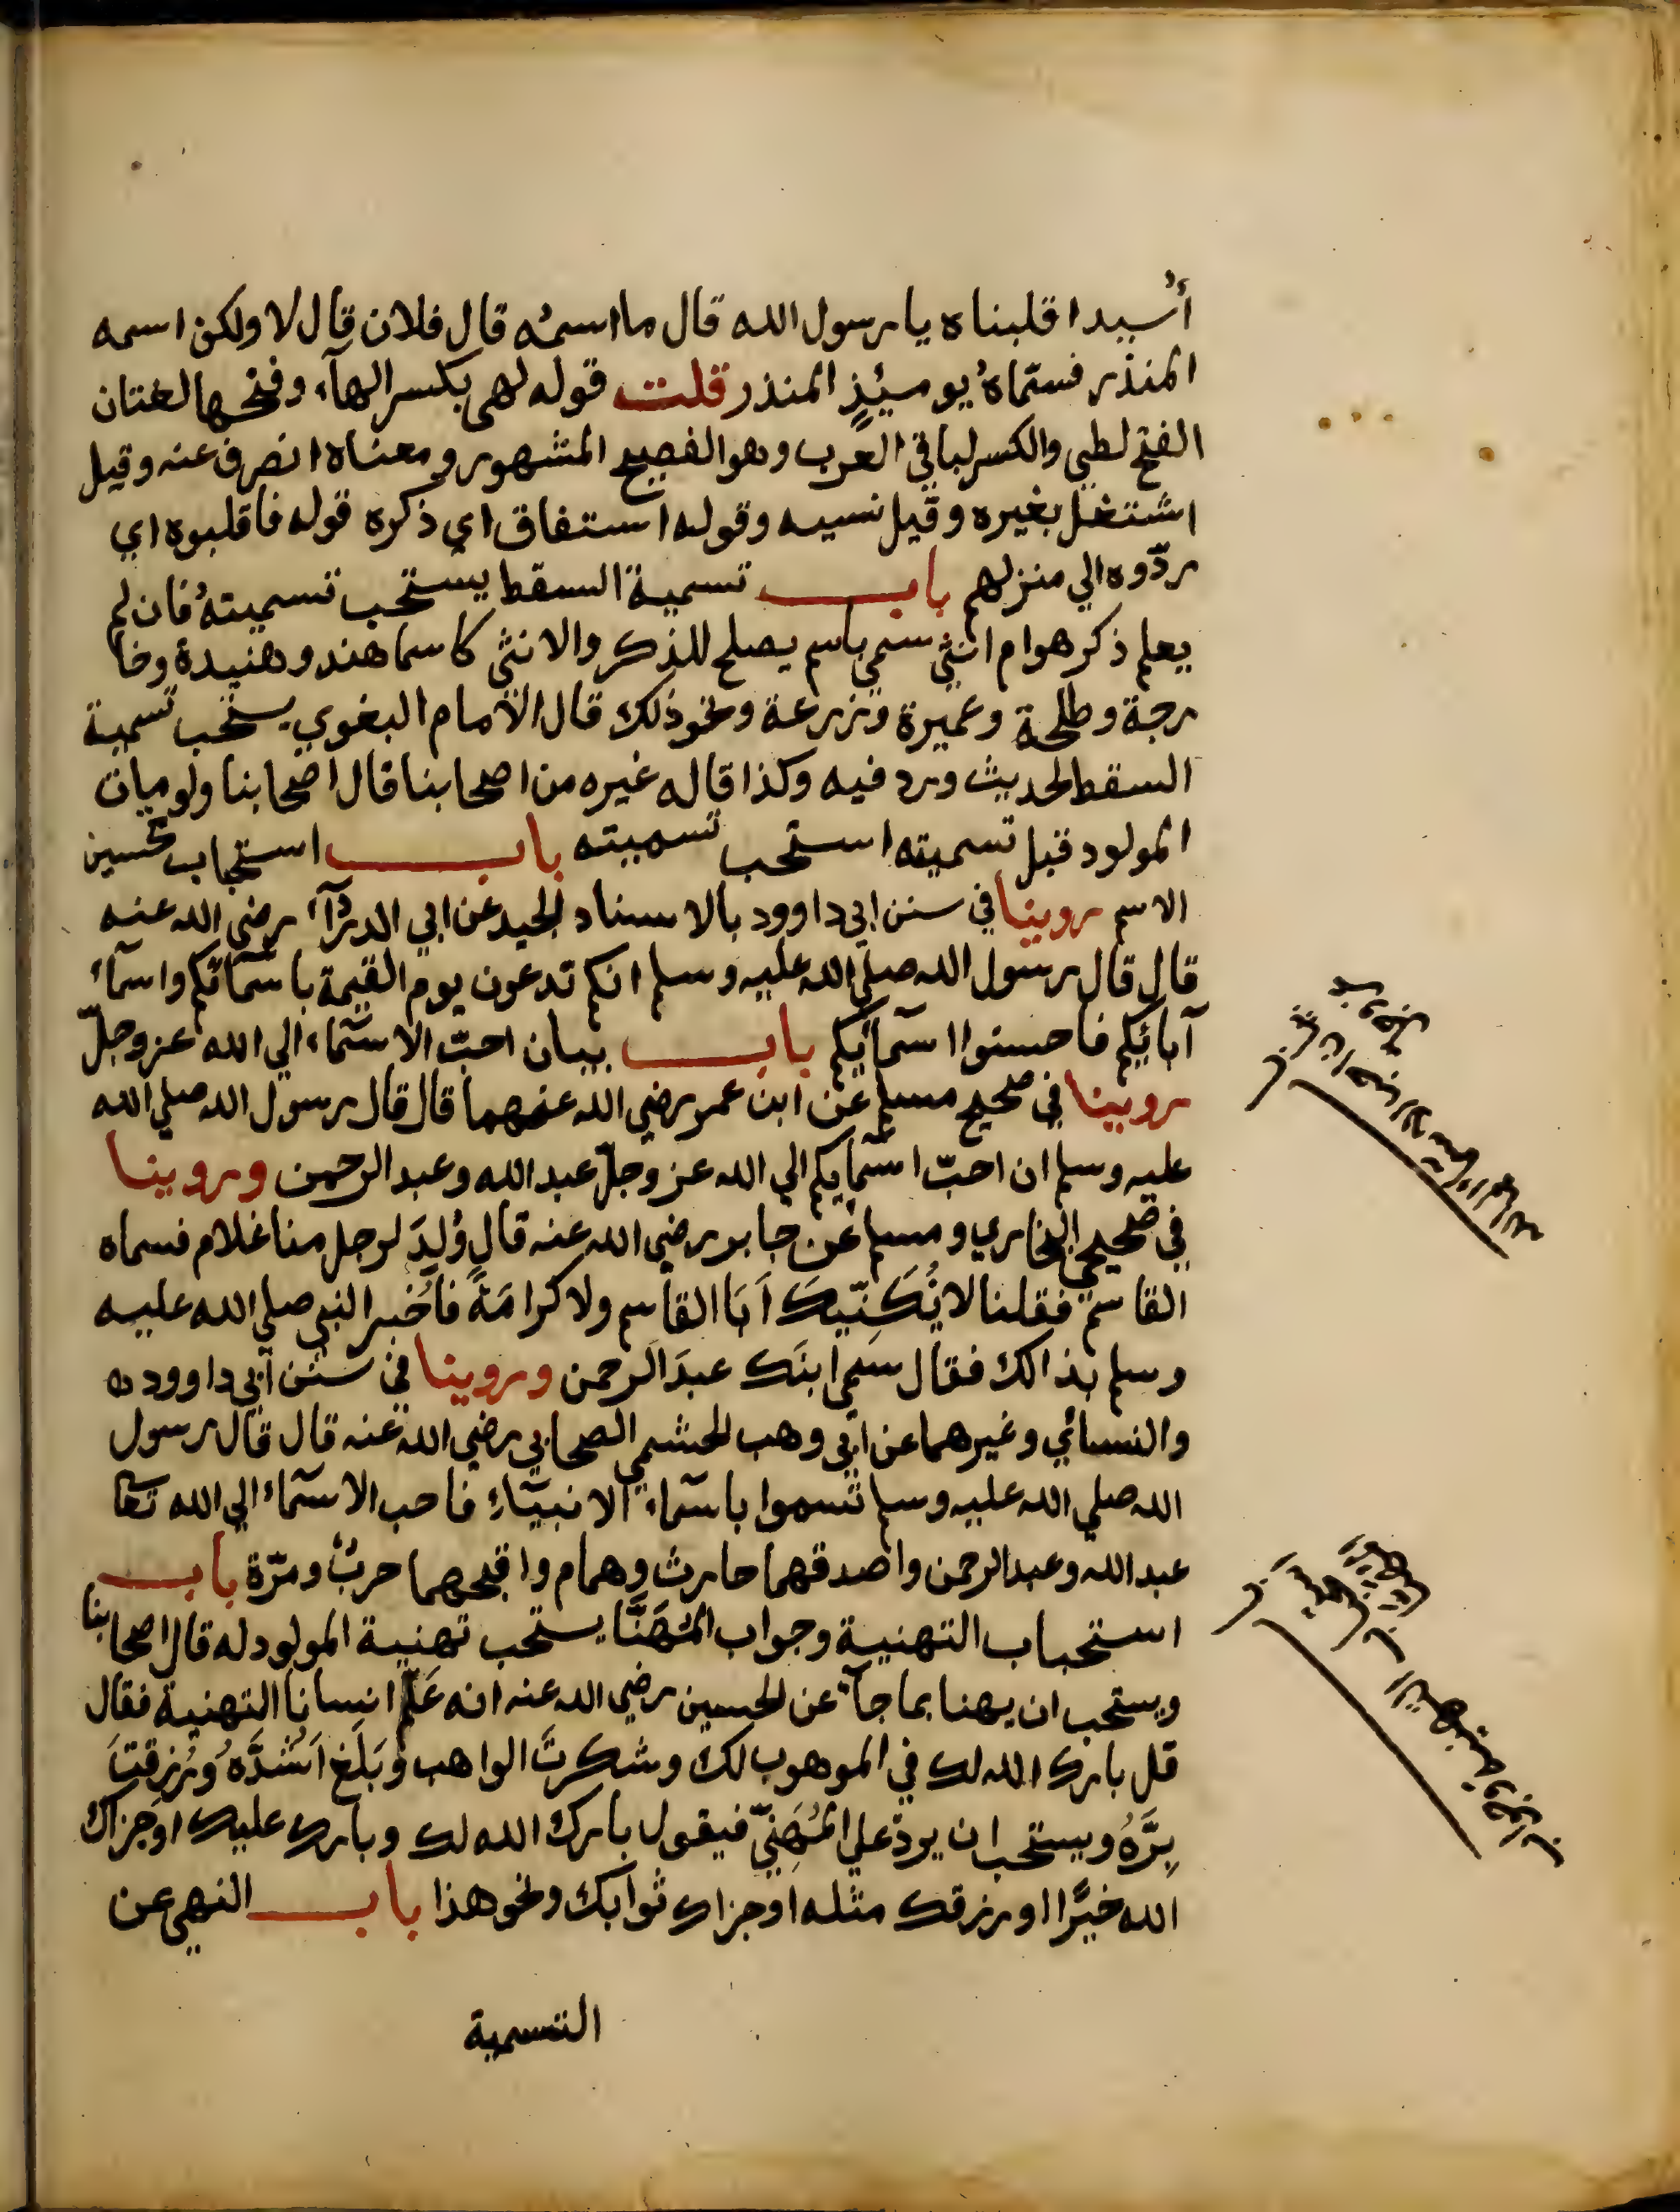 أُسيدا قلبناه يا رسول الله قال ما اسمُه قال فلان قال لا ولكن اسمه
المنذر فسمّاهُ يوميئذٍ المنذر قلت قوله لهى بكسر الهآء وفتحها لغتان
الفتح لطي والكسر لباقي العرب وهو الفصيح المشهور ومعناه انصرف عنه وقيل
اشتغل بغيره وقيل نسيه وقوله استفاق اي ذكره قوله فاقلبوه اي
ردّوه الي منزلهم باب تسمية السقط يستحب تسميتهُ فان لم
يعلم ذكر هوام انثي سمي باسم يصلح للذكر والانثي كاسما هند وهنيدة وخا
رجة وطلحة وعميرة وزرعة ونحو ذلك قال الامام البغوي يستحب تسمية
السقط لحديث ورد فيه وكذا قاله غيره من اصحابنا قال اصحابنا ولو مات
المولود قبل تسميته استحب تسميته باب استحباب تحسين
الاسم روينا في سنن ابي داوود بالاسناد الجيد عن ابي الدردآء رضي الله عنه
قال قال رسول الله صلي الله عليه وسلم انكم تدعون يوم القيمة باسمآئكم واسمآء
آبائكم فاحسنوا اسمآئكم باب بيان احبّ الاسمآء الي الله عز وجلّ
روينا في صحيح مسلم عن ابن عمر رضي الله عنهما قال قال رسول الله صلي الله
عليه وسلم ان احبّ اسمآيكم الي الله عز وجلّ عبد الله وعبد الرحمن وروينا
في صحيحي البخاري ومسلم عن جابر رضي الله عنه قال وُلِدَ لرجل منا غلام فسماه
القاسم فقلنا لا نُكَنِّيكَ اَبَا القاسم ولا كرامَةً فاُخبر النبي صلي الله عليه
وسلم بذالك فقال سَمِ ابنَك عبدَ الرحمن وروينا في سنن ابي داوود
والنسائي وغيرهما عن ابي وهب الجشمي الصحابي رضي الله عنه قال قال رسول
الله صلي الله عليه وسلم تسموا باسمآء الانبيآء فاحب الاسمآء الي الله تعا
عبد الله وعبد الرحمن واصدقهما حارث وهمام واقبحهما حربٌ ومرّة باب
استحباب التهنية وجواب المُهَنَّا يستحب تهنية المولود له قال اصحابنا
ويستحب ان يهنا بما جآء عن الحسين رضي الله عنه انه عَلَّم انسانا التهنية فقال
قل بارك الله لك في الموهوب لك وشكرتَ الواهب وبَلَغ اَشُدَّه وَرُزقتَ
بِرَّهُ ويستحب ان يردّ علي المُهَنِّي فيقول بارك الله لك وبارك عليك او جزاك
الله خيرًا او رزقك مثله او جزاك ثوابك ونحو هذا باب النهي عن
التسمية